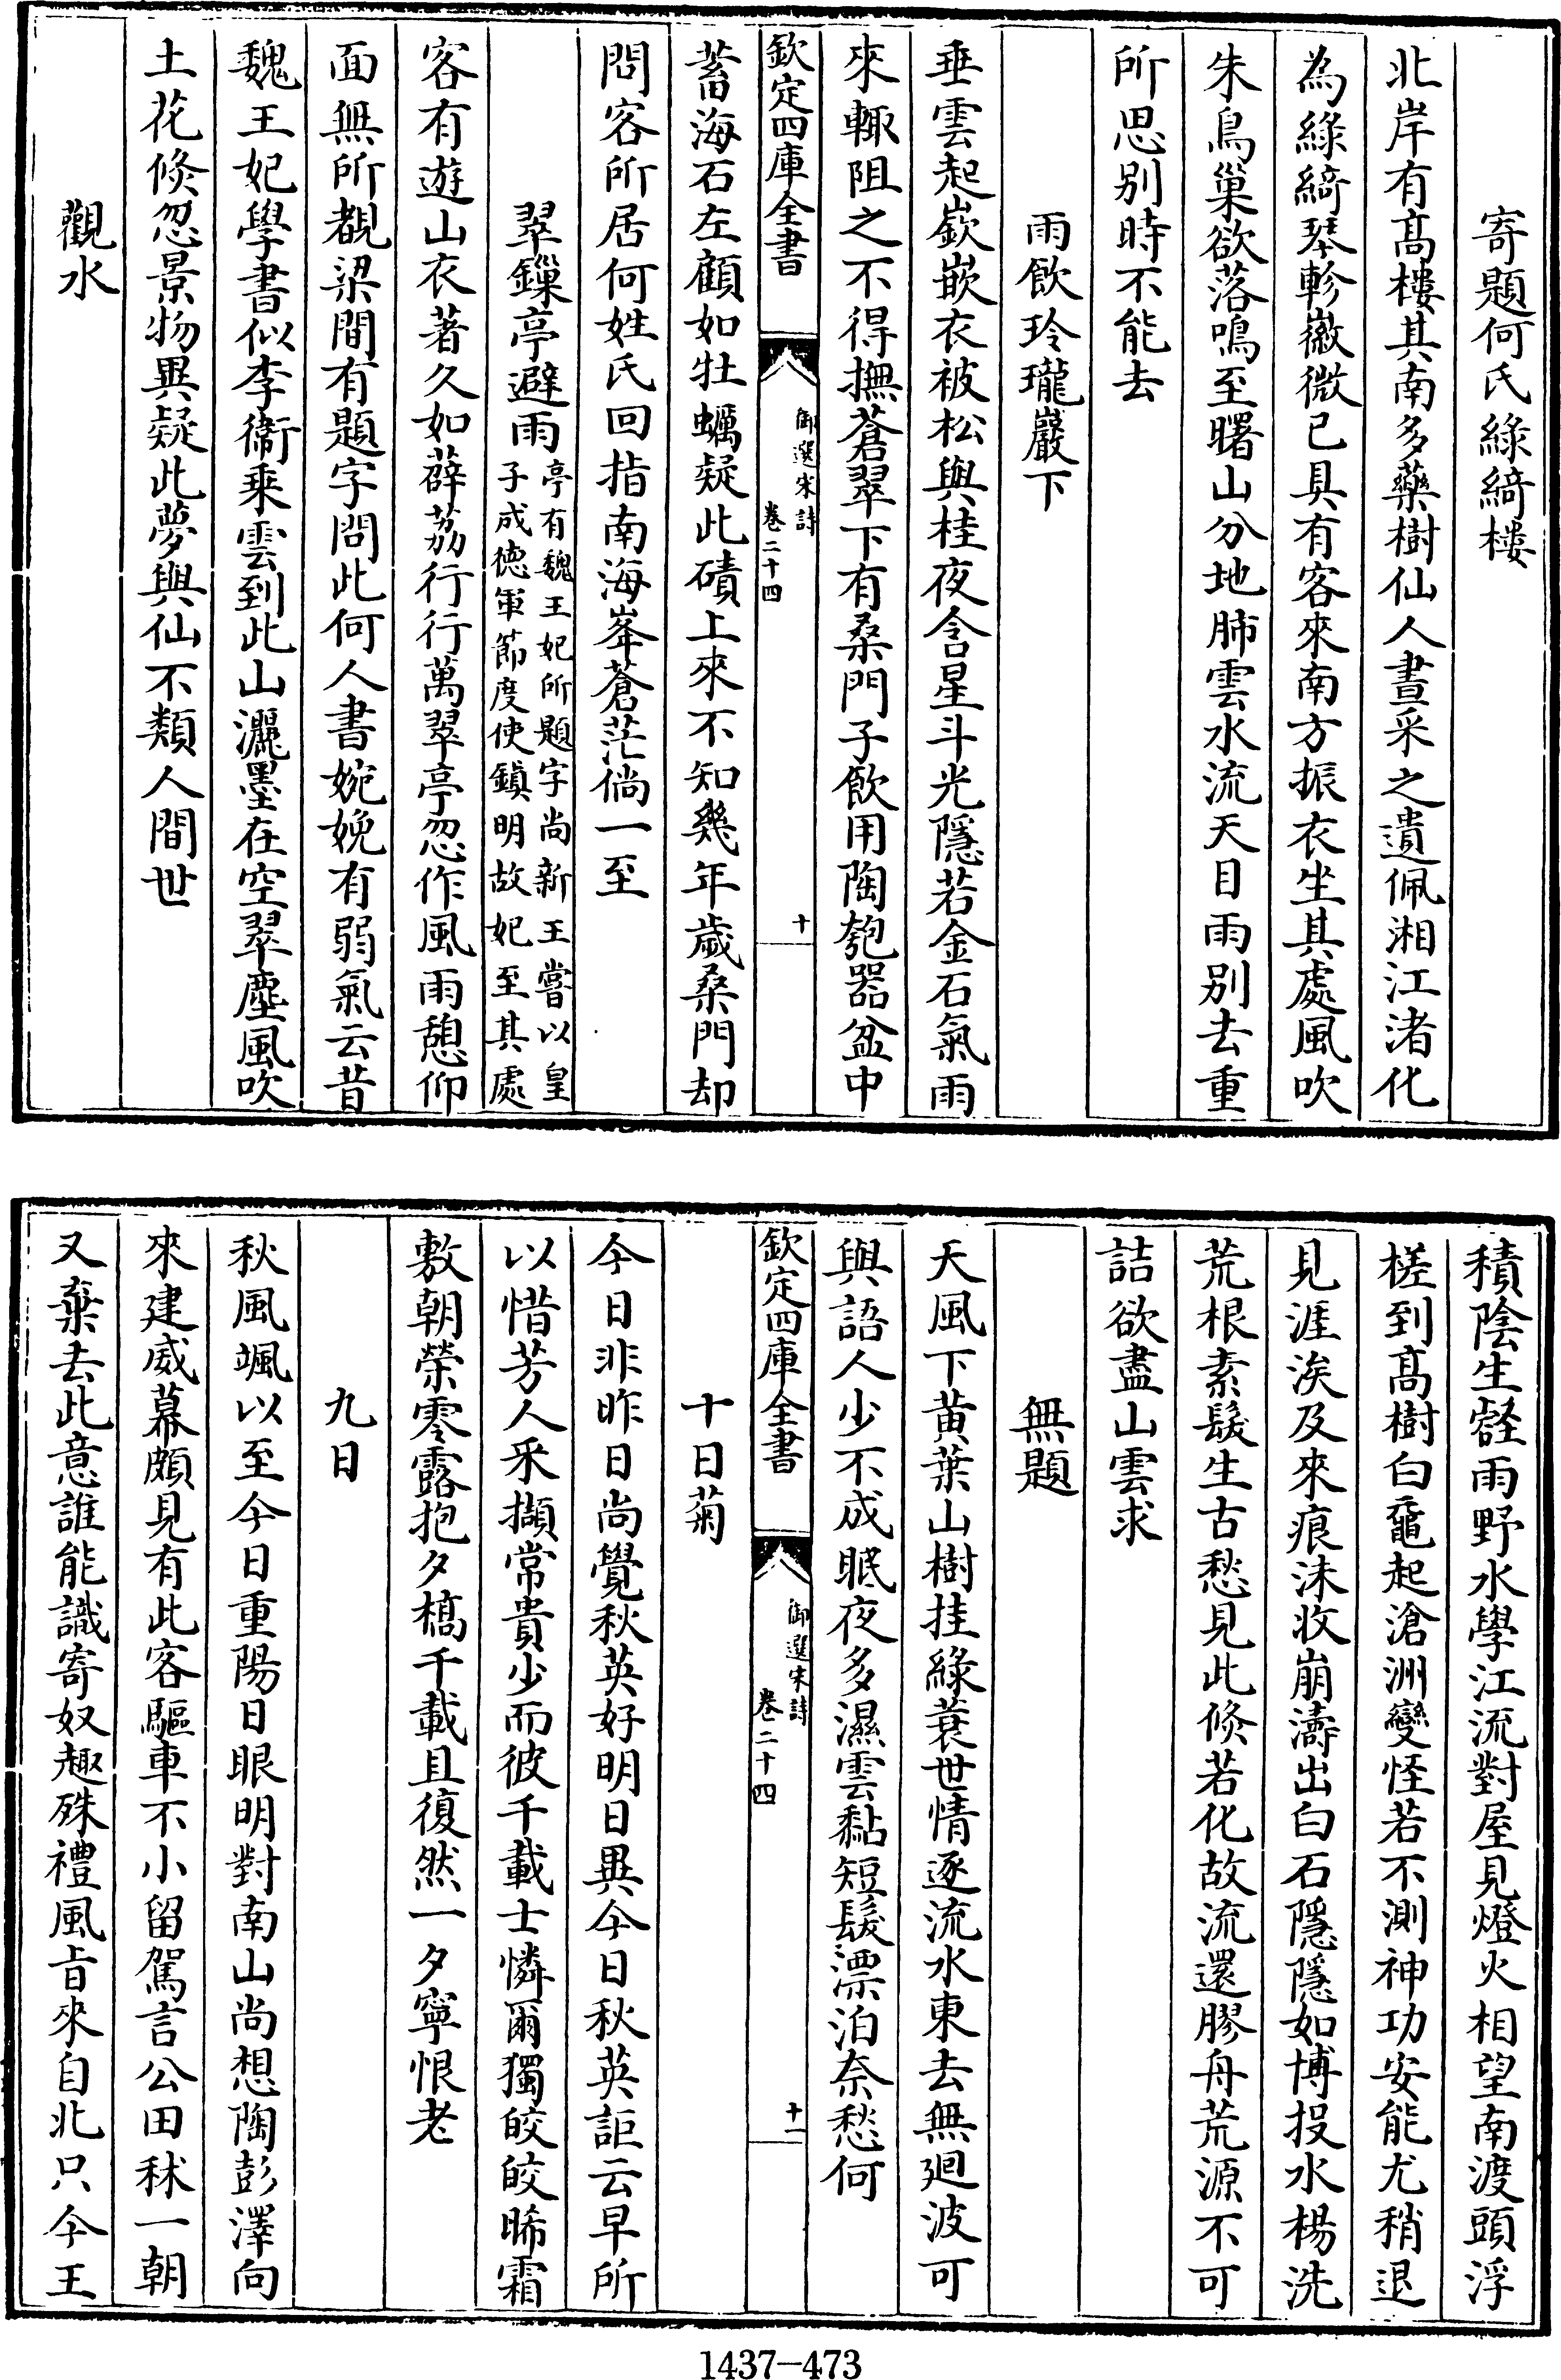 寄題何氏綠綺樓
北岸有髙樓其南多藥樹仙人晝采之遺佩湘江渚化
為綠綺琴軫徽微已具有客來南方振衣坐其處風吹
朱鳥巢欲落鳴至曙山分地肺雲水流天目雨别去重
所思别時不能去
雨飲玲瓏巖下
垂雲起嶔嵌衣被松與桂夜含星斗光隱若金石氣雨
來輙阻之不得撫蒼翠下有桑門子飲用陶匏器盆中
欽定四庫全書
御選宋詩
卷二十四
十
蓄海石左顧如牡蠣疑此磧上來不知幾年歳桑門却
問客所居何姓氏回指南海峯蒼茫倘一至
翠鏁亭避雨亭有魏王妃所題字尚新王嘗以皇
子成徳軍節度使鎮明故妃至其處
客有遊山衣著久如薜荔行行萬翠亭忽作風雨憩仰
面無所覩梁間有題字問此何人書婉娩有弱氣云昔
魏王妃學書似李衞乘雲到此山灑墨在空翠塵風吹
土花倐忽景物異疑此夢與仙不類人間世
觀水
積陰生壑雨野水學江流對屋見燈火相望南渡頭浮
槎到髙樹白黿起滄洲變怪若不測神功安能尤稍退
見涯涘及來痕沬收崩濤出白石隱隱如博投水楊洗
荒根素髮生古愁見此倐若化故流還膠舟荒源不可
詰欲盡山雲求
無題
天風下黄葉山樹挂綠蓑世情逐流水東去無廻波可
與語人少不成眠夜多濕雲黏短髮漂泊奈愁何
欽定四庫全書
御選宋詩
卷二十四
十一
十日菊
今日非昨日尚覺秋英好明日異今日秋英詎云早所
以惜芳人采擷常貴少而彼千載士憐爾獨皎皎晞霜
敷朝榮零露抱夕槁千載且復然一夕寧恨老
九日
秋風颯以至今日重陽日眼明對南山尚想陶彭澤向
來建威幕頗見有此客驅車不小留駕言公田秫一朝
又棄去此意誰能識寄奴趣殊禮風旨來自北只今王
1437-473